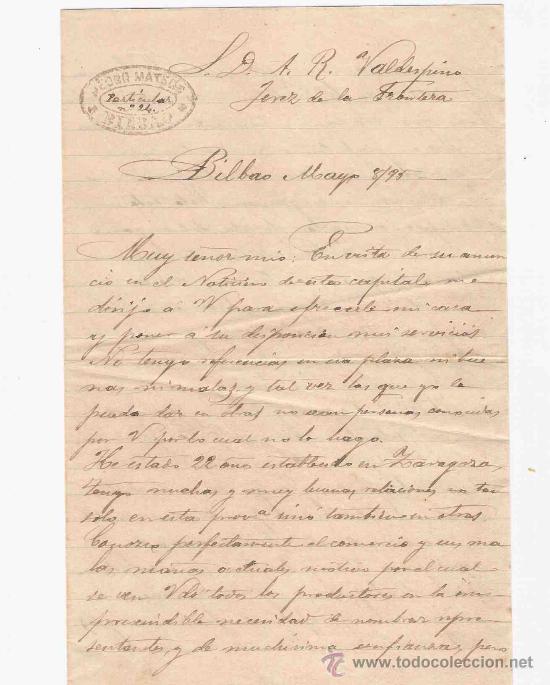 S. D. A. R. ª Valdespino
Jerez de la Frontera
PEDRO MATEO
Particular
nº 24
BILBAO
Bilbao Mayo 8/95
Muy señor mio: En vista de su anun
cio en el Noticiero de esta capital me
dirijo á V para ofrecerle mi casa
y poner á su disposicion mis servicios
No tengo referencias en esa plaza ni bue
nas ni malas, y tal vez las que yo le
pueda dar en otras no sean personas conocidas
por V por lo cual no lo hago.
He estado 22 años establecido en Zaragoza,
tengo muchas y muy buenas relaciones no tan
solo en esta provª sinó tambien en otras
Conozco perfectamente el comercio y sus ma
las mañas actuales motivo por el cual
se ven Vds todos los productores en la im
prescindible necesidad de nombrar repre
sentantes, y de muchisima confianza, pero
www.todocoleccion.net